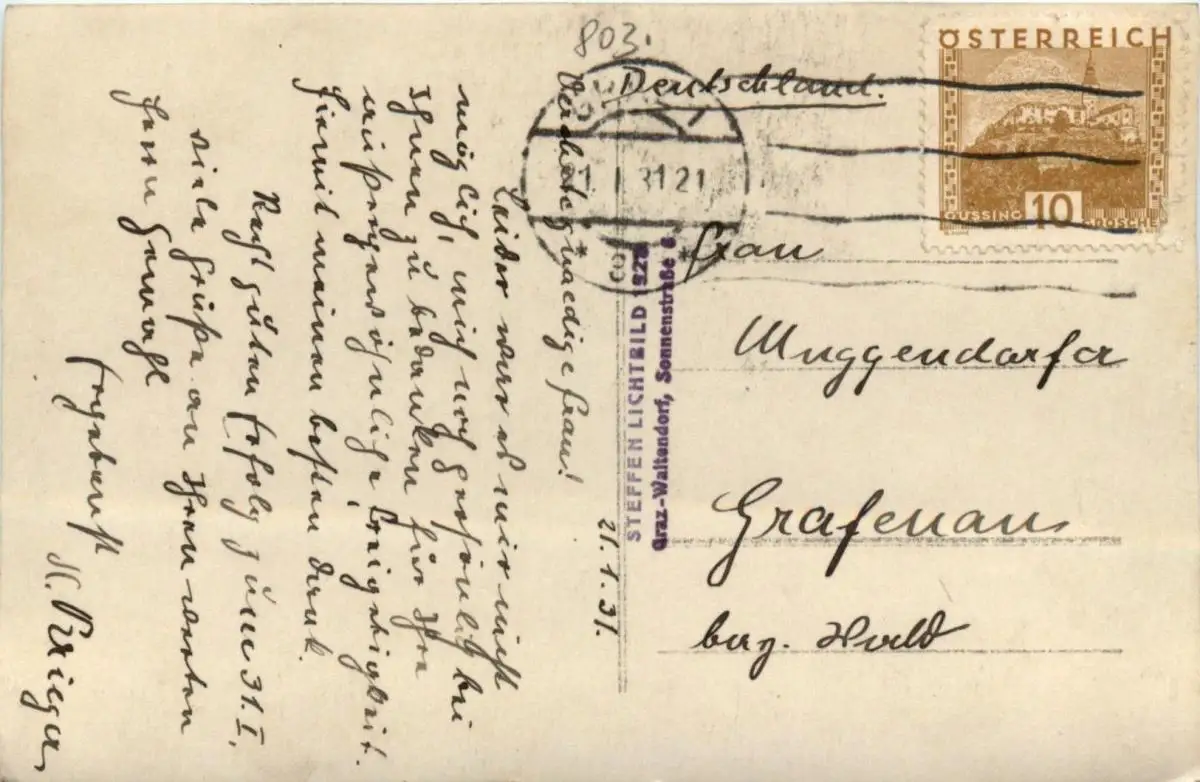 803.
Deutschland.
ÖSTERREICH
GÜSSING
10
I 31 21
Frau
Muggendorfer
Grafenau
bay. Wald
STEFFEN LICHTBILD 1928
Graz-Waltendorf, Sonnenstraße 6.
21.1.31.
gnaedige Frau!
Leider war es mir nicht
möglich, mich noch persönlich bei
Ihnen zu bedanken für Ihre
außergewöhnliche
Hiemit meinen besten Dank.
Recht guten Erfolg zum 31.I.
viele Grüße an Ihren werten
Herrn Gemahl
Ergebenst